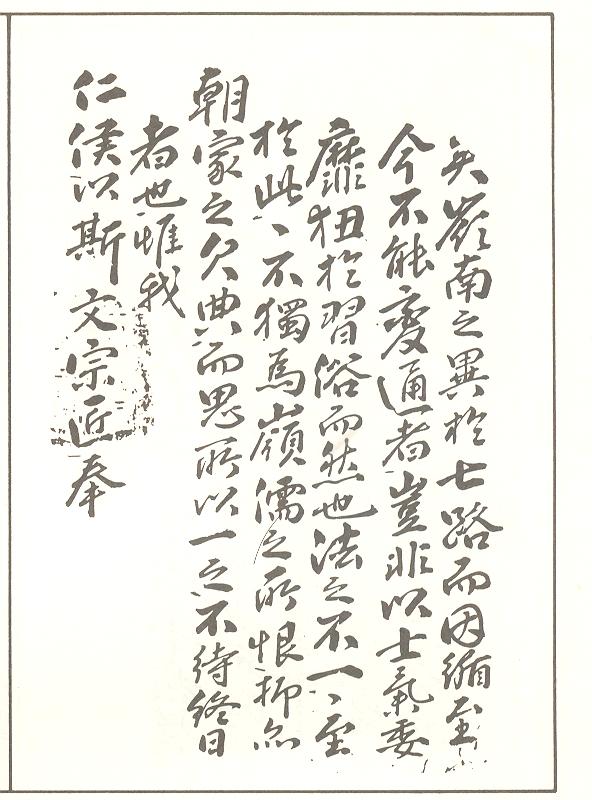 矣嶺南之異於七路而因循至
今不能變通者豈非以士氣委
靡狃於習俗而然也法之不一、至
於此、不獨爲嶺儒之所恨抑亦
朝家之欠典而思所以一之不待終日
者也惟我
仁侯以斯文宗匠奉